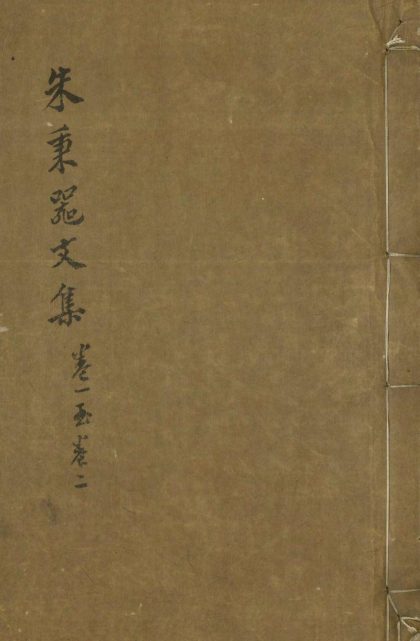 朱秉器文集
卷一至卷二